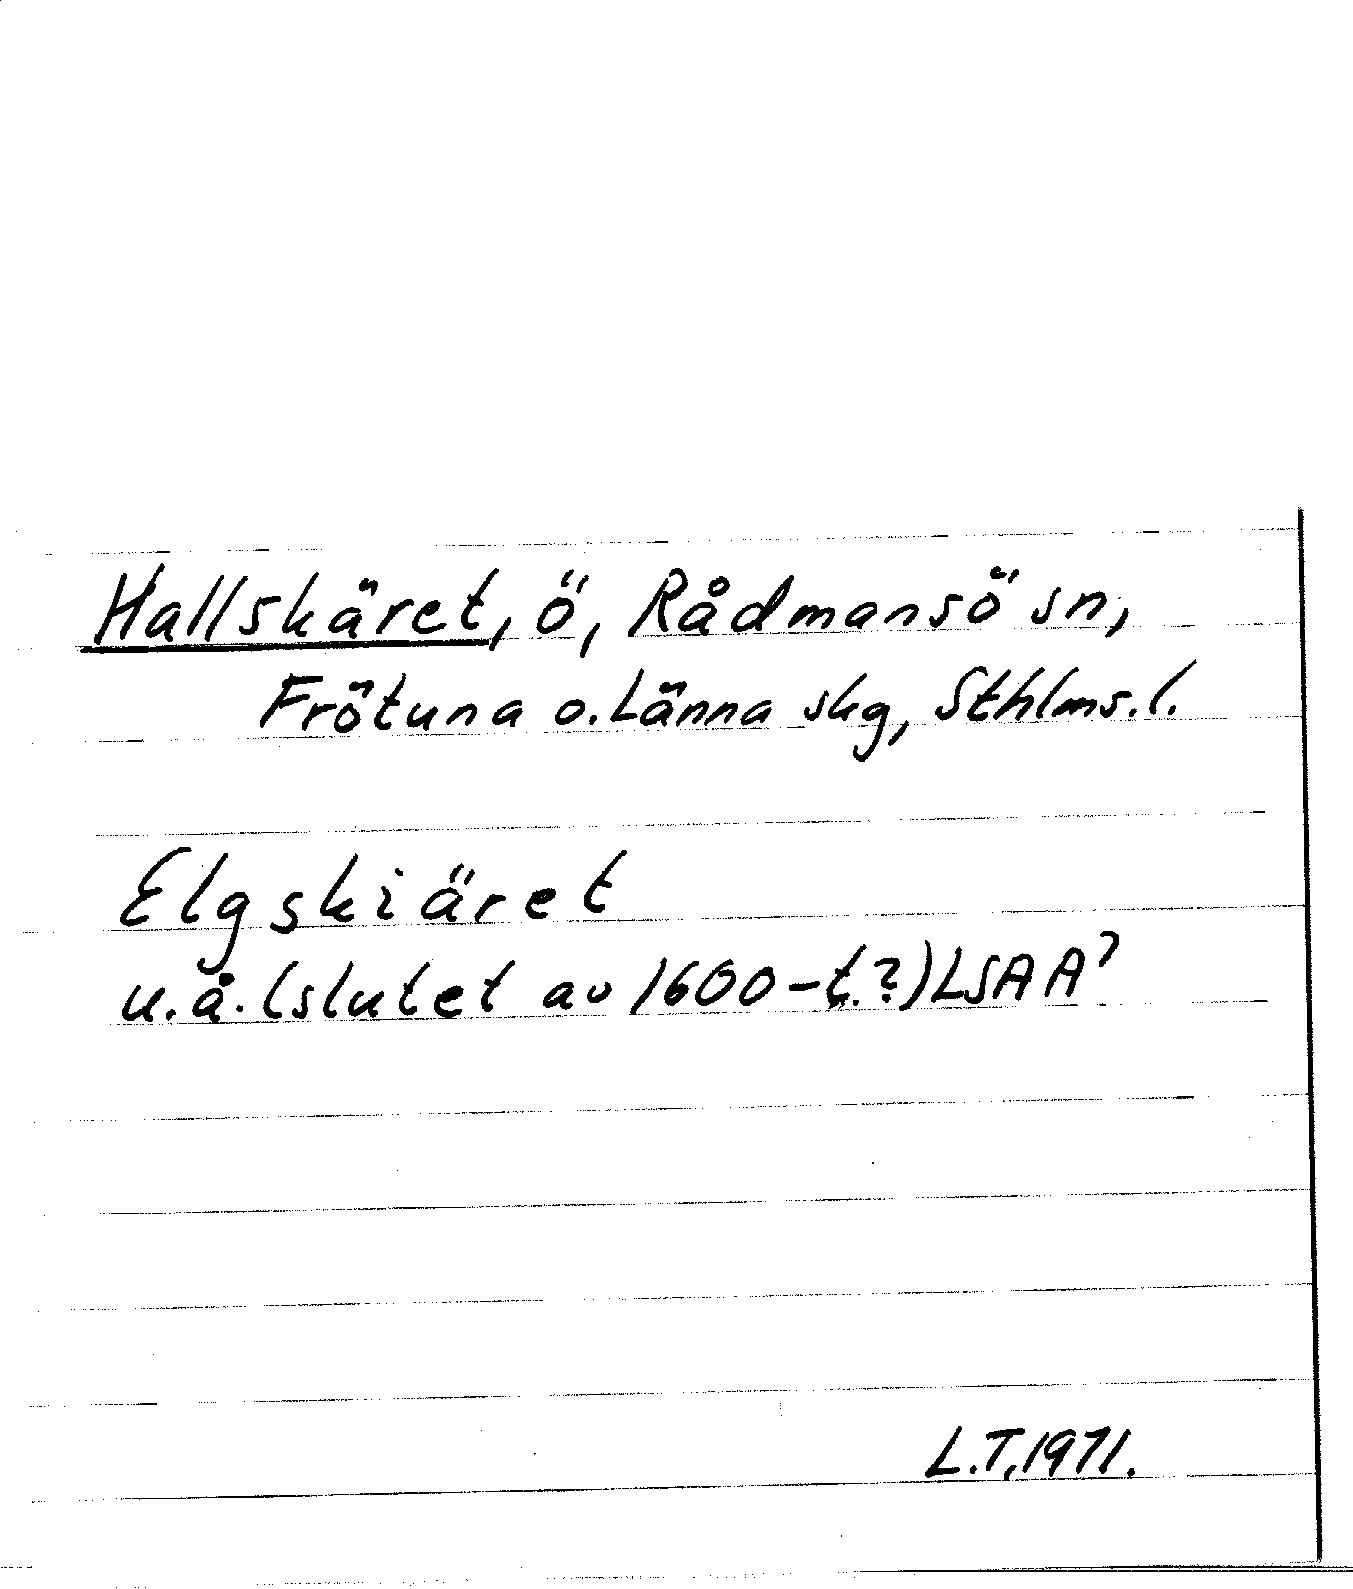 Hallskäret, ö, Rådmansö sn,
Frötuna o. Länna skg, Sthlms. l.
Elgskiäret
u.å. (slutet av 1600-t.?) LSA A?
L.T. 1971.